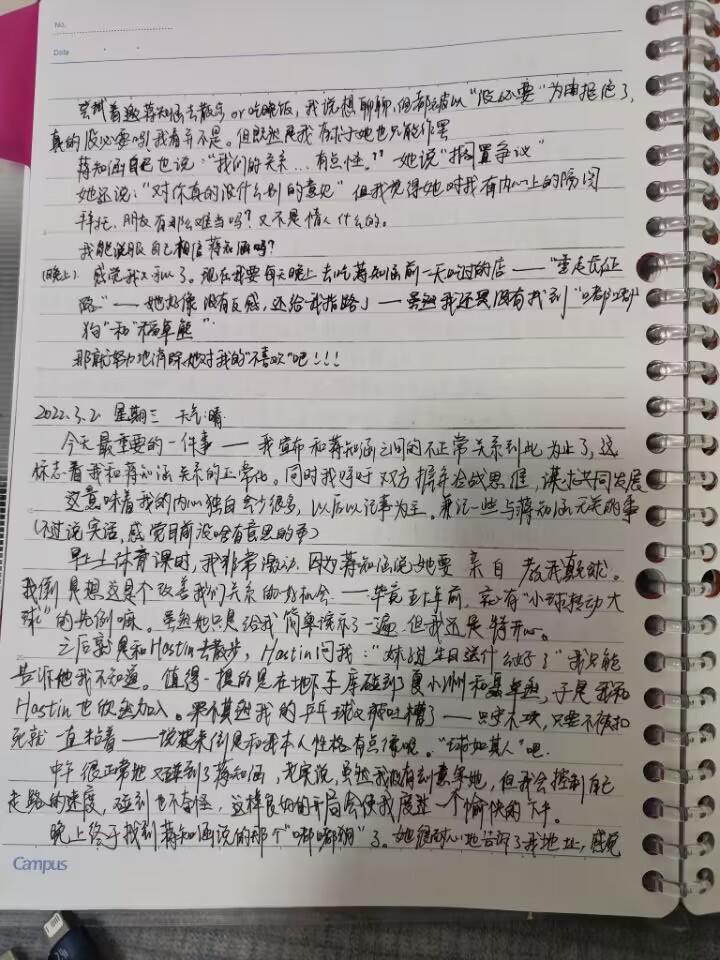 No.
Date
尝试着邀蒋知涵去散步or吃晚饭，我说想聊聊，但都被以“没必要”为由拒绝了，
真的没必要吗？我看并不是。但既然是我有求于她也只能作罢
蒋知涵自己也说：“我们的关系…有点怪。”她说“搁置争议”
她还说：“对你真的没什么别的意见”但我觉得她对我有内心上的隔阂
拜托，朋友有那么难当吗？又不是情人什么的。
我能说服自己相信蒋知涵吗？
(晚上) 感觉我又行了。现在我要每天晚上去吃蒋知涵前一天吃过的店——“重走长征
路”——她好像没有反感，还给我指路了——虽然我还是没有找到“嘟嘟
狗”和“福年熊”
那就努力地消除她对我的“不喜欢”吧！！！
2022.3.2 星期三 天气：晴
今天最重要的一件事——我宣布和蒋知涵之间的不正常关系到此为止了，这
标志着我和蒋知涵关系的正常化。同时我呼吁双方摒弃冷战思维，谋求共同发展
这意味着我的内心独白会少很多，以后以记事为主。兼记一些与蒋知涵无关的事
(不过说实话，感觉目前没啥有意思的事)
早上上体育课时，我非常激动，因为蒋知涵说她要亲自教我颠球。
我倒是想这是个改善我们关系的好机会——毕竟五十年前，就有“小球转动大
球”的先例嘛。虽然她只是给我简单演示了一遍，但我还是特开心。
之后就是和Hastin去散步，Hastin问我：“妹妹生日送什么好？”我只能
告诉他我不知道。值得一提的是在地下车库碰到了夏小洲和聂年熊，于是我和
Hastin也欣然加入。果不其然我的乒乓球又被吐槽了——只守不攻，只要不被扣
死就一直粘着——说起来倒是和我本人性格有点像呢。“球如其人”吧。
中午很正常地又碰到了蒋知涵，老实说，虽然我没有刻意等她，但我会控制自己
走路的速度，碰到也不奇怪，这样良好的开局会使我度过一个愉快的下午。
晚上终于找到蒋知涵说的那个“嘟嘟狗”了。她很耐心地告诉了我地址，感觉
Campus